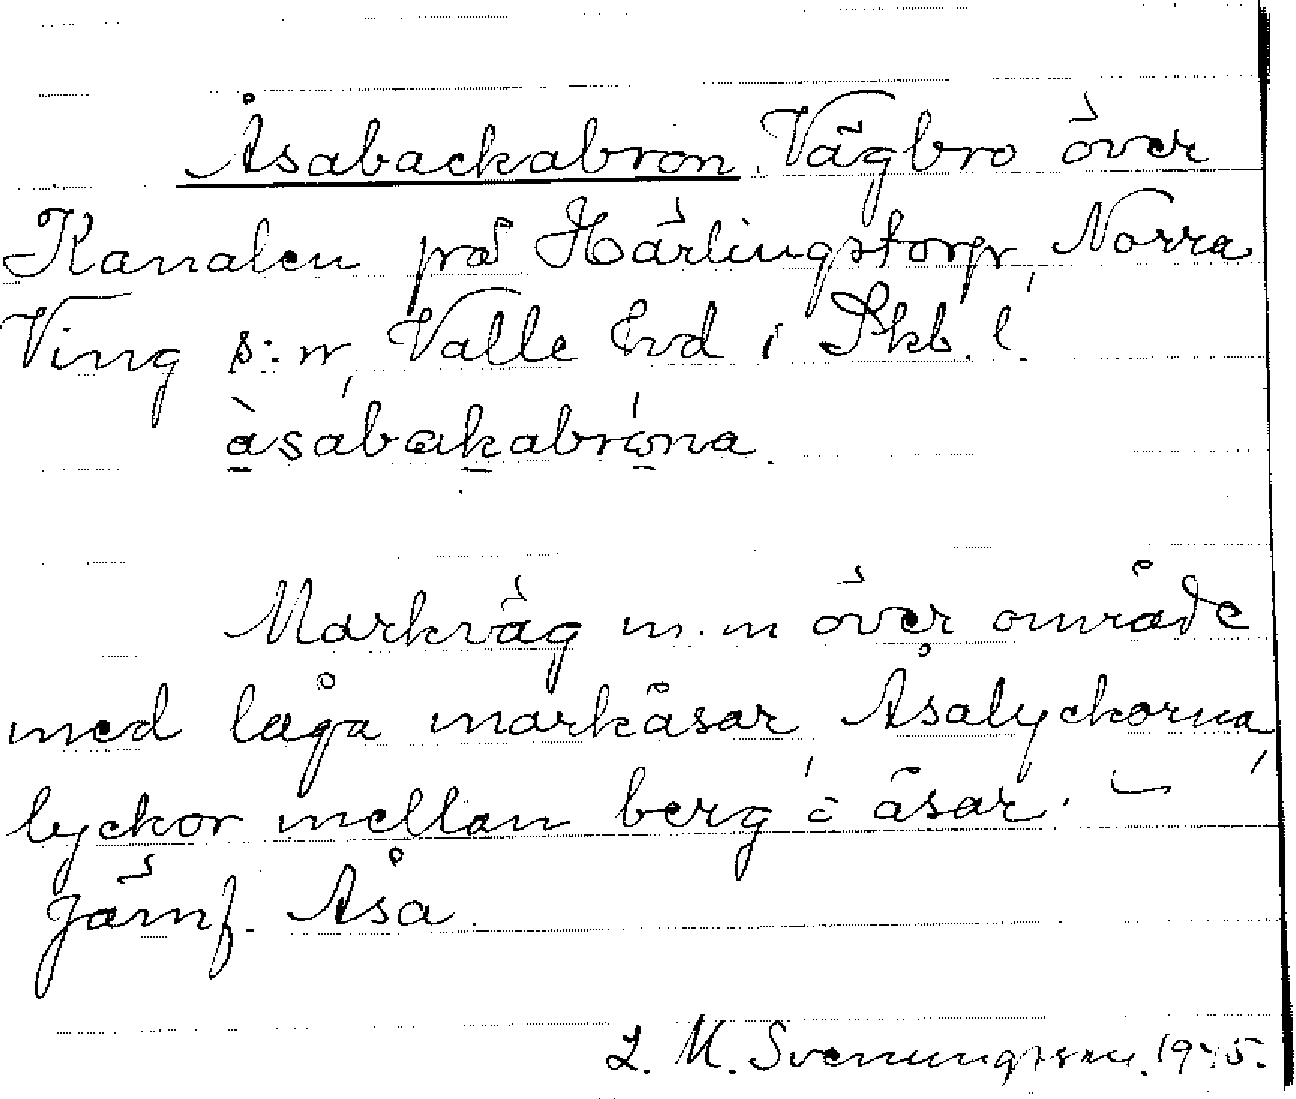 Åsabackabron. Vägbro över
Kanalen på Härlingstorp, Norra
Ving s:n, Valle hd i Skb. l.
àsabakabróna.
Markväg m.m över område
med låga markåsar, Åsalyckorna,
lyckor mellan berg o åsar. –
Jämf. Åsa.
L. M. Svenungsson. 1945.